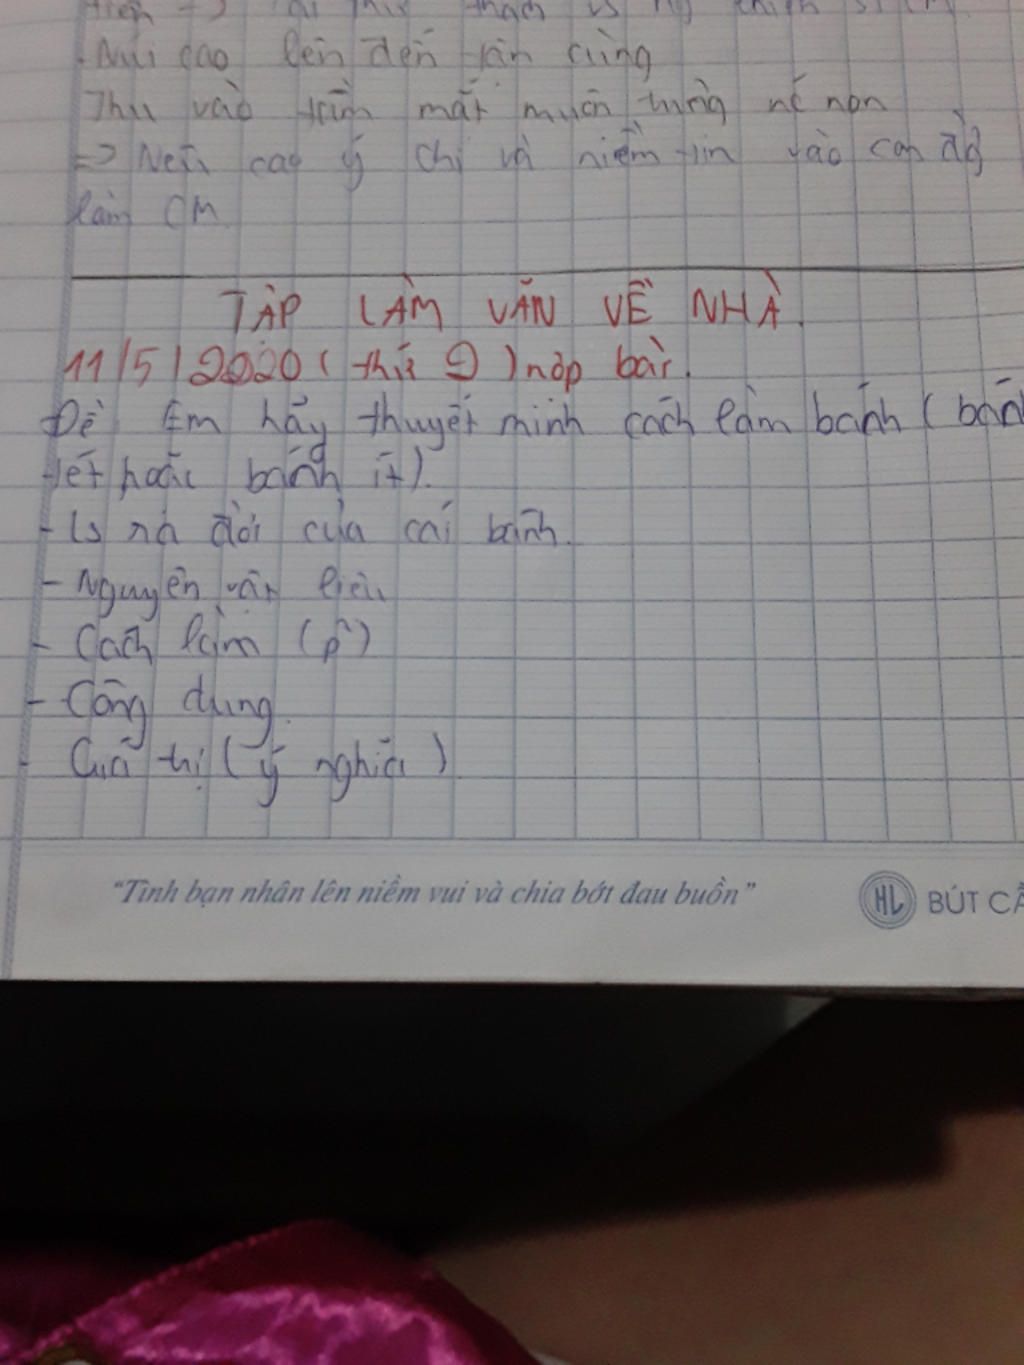 Núi cao lên đến tận cùng
Thu vào tầm mắt muôn trùng nc non
=> Nêu cao ý chí và niềm tin vào con đg
làm CM
TẬP LÀM VĂN VỀ NHÀ.
11/5/2020 (thứ 2) nộp bài.
Đề: Em hãy thuyết minh cách làm bánh (bánh
tét hoặc bánh ít).
- Ls ra đời của cái bánh.
- Nguyên vật liệu
- Cách làm (p²)
- Công dụng.
- Giá trị (ý nghĩa)
"Tình bạn nhân lên niềm vui và chia bớt đau buồn"
HL BÚT